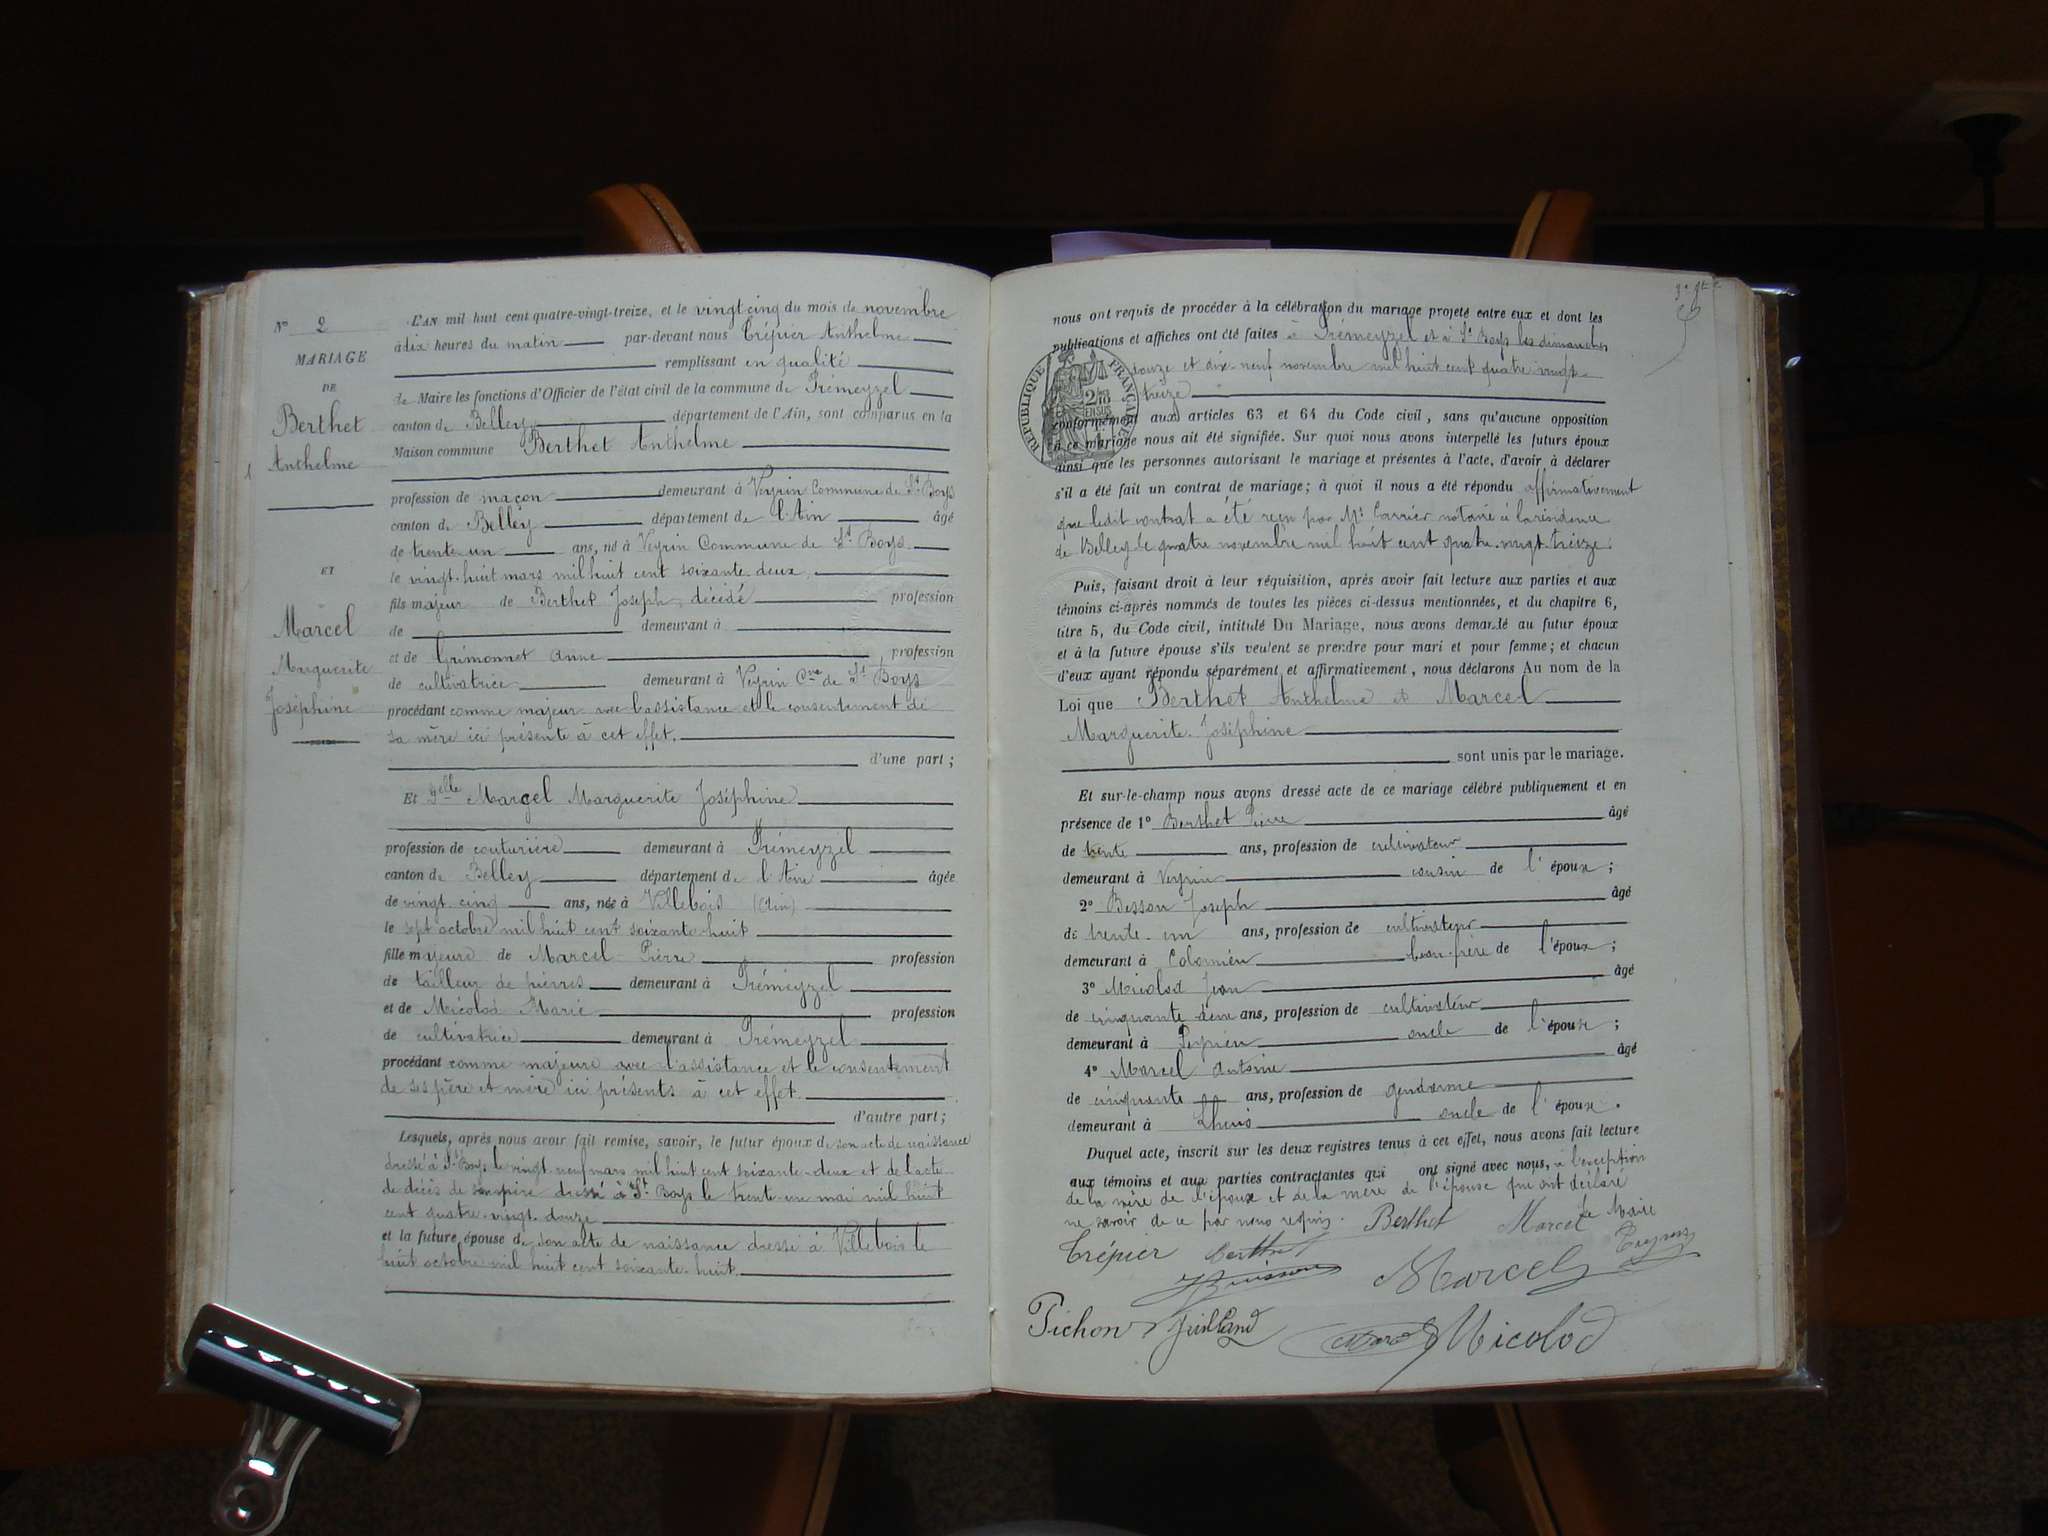 N° 2
MARIAGE
DE
Berthet
Anthelme
ET
Marcel
Marguerite
Joséphine
L'AN mil huit cent quatre-vingt-treize, et le vingt cinq du mois de novembre
à dix heures du matin par-devant nous Crépier Anthelme
remplissant en qualité
de Maire les fonctions d'Officier de l'état civil de la commune de Prémeyzel
canton de Belley département de l'Ain, sont comparus en la
Maison commune Berthet Anthelme
profession de maçon demeurant à Veyrin Commune de St Boys
canton de Belley département de l'Ain âgé
de trente un ans, né à Veyrin Commune de St Boys
le vingt-huit mars mil huit cent soixante-deux,
fils majeur de Berthet Joseph, décédé profession
de demeurant à
et de Grimonnet Anne profession
de cultivatrice demeurant à Veyrin Cne de St Boys
procédant comme majeur avec l'assistance et le consentement de
sa mère ici présente à cet effet.
d'une part ;
Et Delle Marcel Marguerite Joséphine
profession de couturière demeurant à Prémeyzel
canton de Belley département de l'Ain âgée
de vingt-cinq ans, née à Villebois (Ain)
le sept octobre mil huit cent soixante-huit
fille majeure de Marcel Pierre profession
de tailleur de pierres demeurant à Prémeyzel
et de Micolod Marie profession
de cultivatrice demeurant à Prémeyzel
procédant comme majeure avec l'assistance et le consentement
de ses père et mère ici présents à cet effet.
d'autre part ;
Lesquels, après nous avoir fait remise, savoir, le futur époux de son acte de naissance
dressé à St Boys le vingt-neuf mars mil huit cent soixante-deux et de l'acte
de décès de son père dressé à St Boys le trente-un mai mil huit
cent quatre-vingt-douze
et la future épouse de son acte de naissance dressé à Villebois le
huit octobre mil huit cent soixante-huit.
nous ont requis de procéder à la célébration du mariage projeté entre eux et dont les
publications et affiches ont été faites à Prémeyzel et à St Boys les dimanches
douze et dix-neuf novembre mil huit cent quatre vingt-
treize
RÉPUBLIQUE FRANÇAISE
conformément aux articles 63 et 64 du Code civil, sans qu'aucune opposition
à ce mariage nous ait été signifiée. Sur quoi nous avons interpellé les futurs époux
ainsi que les personnes autorisant le mariage et présentes à l'acte, d'avoir à déclarer
s'il a été fait un contrat de mariage ; à quoi il nous a été répondu affirmativement
que ledit contrat a été reçu par Me Carrier notaire à la résidence
de Belley le quatre novembre mil huit cent quatre-vingt-treize.
Puis, faisant droit à leur réquisition, après avoir fait lecture aux parties et aux
témoins ci-après nommés de toutes les pièces ci-dessus mentionnées, et du chapitre 6,
titre 5, du Code civil, intitulé Du Mariage, nous avons demandé au futur époux
et à la future épouse s'ils veulent se prendre pour mari et pour femme ; et chacun
d'eux ayant répondu séparément et affirmativement, nous déclarons Au nom de la
Loi que Berthet Anthelme et Marcel
Marguerite Joséphine
sont unis par le mariage.
Et sur-le-champ nous avons dressé acte de ce mariage célébré publiquement et en
présence de 1° Berthet Pierre âgé
de trente ans, profession de cultivateur
demeurant à Veyrin cousin de l'époux ;
2° Besson Joseph âgé
de trente-un ans, profession de cultivateur
demeurant à Colomieu beau-frère de l'époux ;
3° Micolod Jean âgé
de cinquante deux ans, profession de cultivateur
demeurant à Peyrieu oncle de l'épouse ;
4° Marcel Antoine âgé
de cinquante ans, profession de gendarme
demeurant à Lhuis oncle de l'épouse.
Duquel acte, inscrit sur les deux registres tenus à cet effet, nous avons fait lecture
aux témoins et aux parties contractantes qui ont signé avec nous, à l'exception
de la mère de l'époux et de la mère de l'épouse qui ont déclaré
ne savoir de ce par nous requis. Berthet Marcel Le Maire
Crépier Berthet
Marcel
Pichon Juilland Micolod